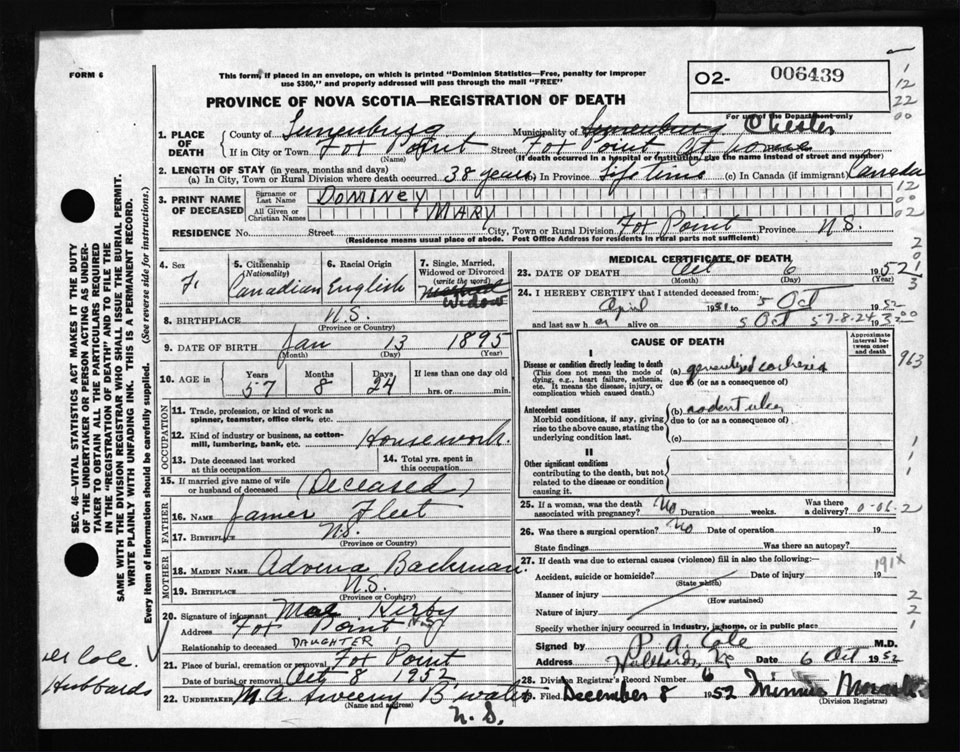 FORM 6
This form, if placed in an envelope, on which is printed "Dominion Statistics—Free, penalty for improper
use $300," and properly addressed will pass through the mail "FREE"
02- 006439
For use of the Department only
PROVINCE OF NOVA SCOTIA—REGISTRATION OF DEATH
1. PLACE OF DEATH
County of Lunenburg Municipality of Lunenburg Chester
If in City or Town Fox Point Street Fox Point, at home
(Name) (If death occurred in a hospital or institution, give the name instead of street and number)
2. LENGTH OF STAY (in years, months and days)
(a) In City, Town or Rural Division where death occurred 38 years (b) In Province Life time (c) In Canada (if immigrant) Canada
3. PRINT NAME OF DECEASED
Surname or Last Name DOMINEY
All Given or Christian Names MARY
RESIDENCE No. Street City, Town or Rural Division Fox Point Province N.S.
(Residence means usual place of abode. Post Office Address for residents in rural parts not sufficient)
4. Sex F.
5. Citizenship (Nationality) Canadian
6. Racial Origin English
7. Single, Married, Widowed or Divorced (write the word) Widow
8. BIRTHPLACE N.S.
(Province or Country)
9. DATE OF BIRTH Jan 13 1895
(Month) (Day) (Year)
10. AGE in Years 57 Months 8 Days 24 If less than one day old hrs. or min.
OCCUPATION
11. Trade, profession, or kind of work as spinner, teamster, office clerk, etc.
12. Kind of industry or business, as cotton-mill, lumbering, bank, etc. Housework.
13. Date deceased last worked at this occupation
14. Total yrs. spent in this occupation
15. If married give name of wife or husband of deceased (Deceased)
FATHER
16. NAME James Fleet
17. BIRTHPLACE N.S.
(Province or Country)
MOTHER
18. MAIDEN NAME Advena Bachman.
19. BIRTHPLACE N.S.
(Province or Country)
20. Signature of informant Mae Kirby
Address Fox Point N.S.
Relationship to deceased DAUGHTER
21. Place of burial, cremation or removal Fox Point
Date of burial or removal Oct 8 1952
22. UNDERTAKER M.A. Sweeny B'water
(Name and address)
N.S.
MEDICAL CERTIFICATE OF DEATH
23. DATE OF DEATH Oct 6 1952
(Month) (Day) (Year)
24. I HEREBY CERTIFY that I attended deceased from:
April 1951 to 5 Oct 1952
and last saw h alive on 5 Oct 57-8-24 19
CAUSE OF DEATH
Approximate interval between onset and death
I
Disease or condition directly leading to death
(This does not mean the mode of dying, e.g., heart failure, asthenia, etc. It means the disease, injury, or complication which caused death.)
(a) generalized cachexia
due to (or as a consequence of)
Antecedent causes
Morbid conditions, if any, giving rise to the above cause, stating the underlying condition last.
(b) rodent ulcer
due to (or as a consequence of)
(c)
II
Other significant conditions
contributing to the death, but not related to the disease or condition causing it.
25. If a woman, was the death associated with pregnancy? No Duration weeks. Was there a delivery?
26. Was there a surgical operation? No Date of operation 19
State findings Was there an autopsy?
27. If death was due to external causes (violence) fill in also the following:—
Accident, suicide or homicide? Date of injury 19
(State which)
Manner of injury
(How sustained)
Nature of injury
Specify whether injury occurred in industry, in home, or in public place
Signed by P. A. Cole M.D.
Address Hubbards, NS Date 6 Oct 1952
28. Division Registrar's Record Number 6
Filed December 8 1952 Minnie
(Division Registrar)
SEC. 46—VITAL STATISTICS ACT MAKES IT THE DUTY
OF THE UNDERTAKER OR PERSON ACTING AS UNDER-
TAKER TO OBTAIN ALL THE PARTICULARS REQUIRED
IN THE "REGISTRATION OF DEATH" AND TO FILE THE
SAME WITH THE DIVISION REGISTRAR WHO SHALL ISSUE THE BURIAL PERMIT.
WRITE PLAINLY WITH UNFADING INK. THIS IS A PERMANENT RECORD.
Every Item of Information should be carefully supplied. (See reverse side for instructions.)
Cole.
Hubbards
1
12
22
00
12
00
02
2
0
963
191X
2
2
1